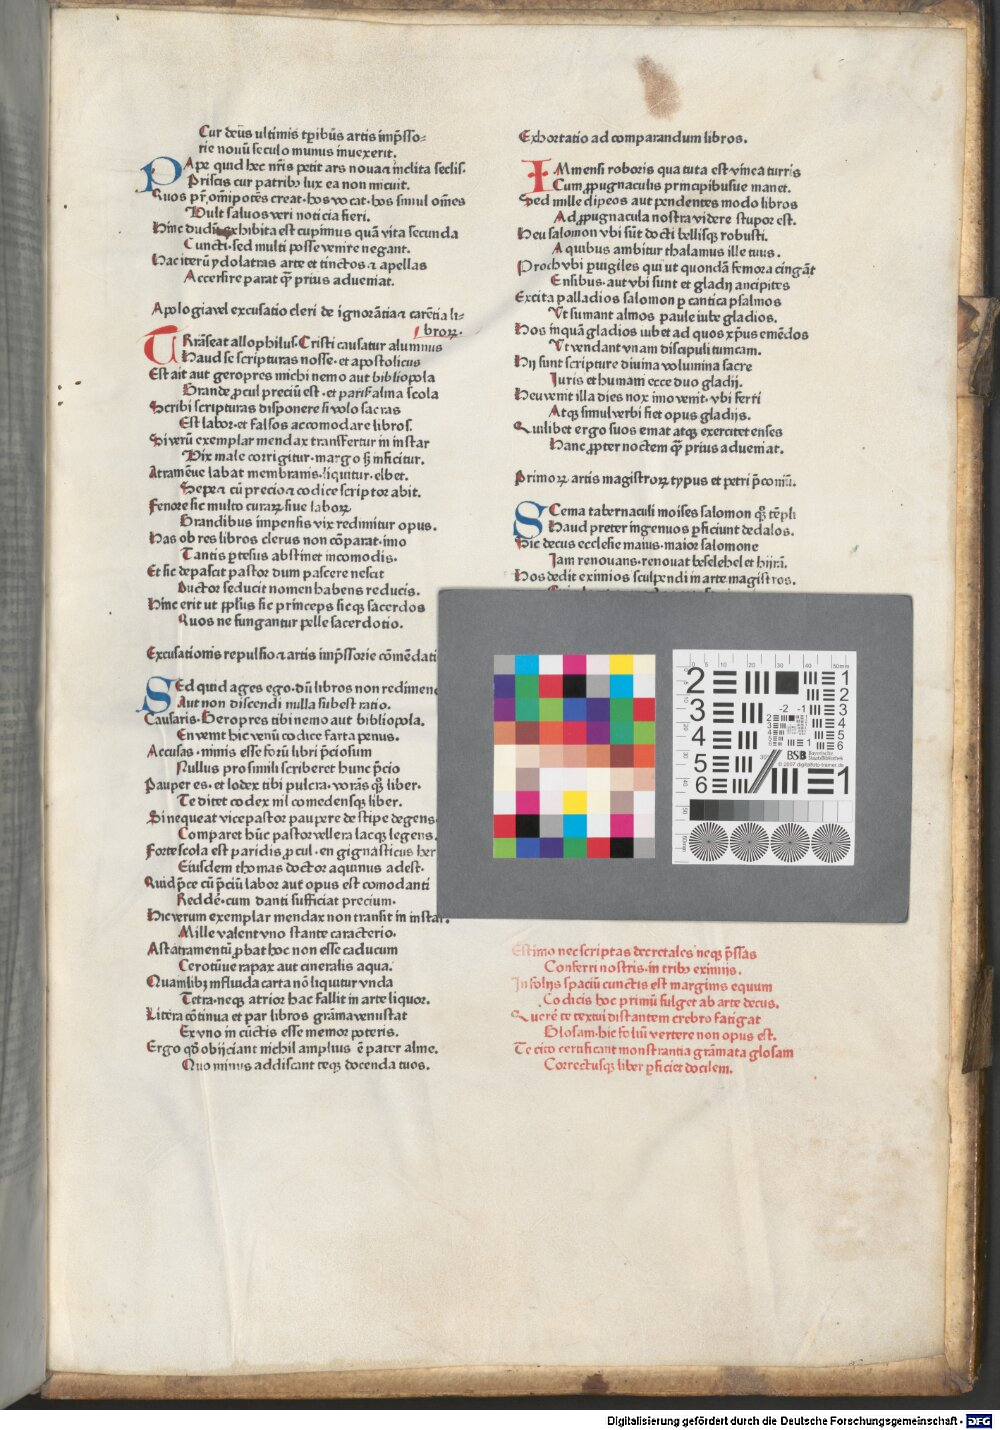 Cur deus ultimis tꝑibus artis imp̄sso⸗
rie nouū seculo munus inuexerit.
PApe quid hec nr̄is petit ars noua ⁊ inclita seclis.
Priscis cur patribꝫ lux ea non micuit.
Quos pr̄ om̄ipotēs creat·hos vocat·hos simul om̄es
Uult saluos veri noticia fieri.
Hinc dudū exhibita est cupimus quā vita secunda
Cuncti·sed multi posse venire negant.
Hac iterū ydolatras arte et tinctos ⁊ apellas
Accersire parat q̄ꝫ prius adueniat.
Apologia vel excusatio cleri de ignorātia ⁊ carētia li⸗
broꝝ.
TRāseat allophilus·Cristi causatur alumnus
Haud se scripturas nosse·et apostolicus
Est ait aut geropres michi nemo aut bibliopola
Grande ꝓcul preciū est·et parisi alma scola
Scribi scripturas disponere si volo sacras
Est labor·et falsos accomodare libros.
Si verū exemplar mendax transfertur in instar
Uix male corrigitur·margo inficitur.
Atramētue labat membranis·liquitur·elbet.
Sepe ⁊ cū precio ⁊ codice scriptor abit.
Fenore sic multo curaꝝ siue laboꝝ
Grandibus impensis vix redimitur opus.
Has ob res libros clerus non cōparat·imo
Tantis ꝑtesus abstinet incomodis.
Et sic depascit pastor dum pascere nescit
Ductor seducit nomen habens reducis.
Hinc erit ut ppl̄us sic princeps sicqꝫ sacerdos
Quos ne fungantur pelle sacerdotio.
Excusationis repulsio ⁊ artis imp̄ssorie cōmēdati
SEd quid ages ergo·dū libros non redimen
Aut non discendi nulla subest ratio.
Causaris·Geropres tibi nemo aut bibliopola.
En vemt hic venū codice farta penus.
Accusas·nimis esse forū libri p̄ciosum
Nullus pro simili scriberet hunc p̄cio
Pauper es·et lodex tibi pulcra·vorās qꝫ liber.
Te ditet codex nil comedensqꝫ liber.
Si nequeat vicepastor paupere de stipe degens
Comparet hūc pastor vellera lacqꝫ legens.
Forte scola est paridis ꝓcul·en gignasticus her
Eiusdem thomas doctor aquinus adest.
Quid p̄ce cū p̄ciū labor aut opus est comodanti
Reddē·cum danti sufficiat precium.
Hic verum exemplar mendax non transit in instar.
Mille valent vno stante caracterio.
Ast atramentū ꝓbat hoc non esse caducum
Cerotiiue rapax aut cineralis aqua.
Quamlibꝫ influida carta nō liquitur vnda
Tetra·neqꝫ atrior hac fallit in arte liquor.
Litera cōtinua et par libros grāma venustat
Ex vno in cūctis esse memor poteris.
Ergo qđ obijciant nichil amplius ē pater alme.
Quo minus addiscant teqꝫ docenda tuos.
Exhortatio ad comparandum libros.
IMmensi roboris qua tuta est vinea turris
Cum ꝓpugnaculis principibusue manet.
Sed mille clipeos aut pendentes modo libros
Ad ꝓpugnacula nostra videre stupor est.
Heu salomon vbi sūt docti bellisqꝫ robusti.
A quibus ambitur thalamus ille tuus.
Proch vbi ꝑuigiles qui ut quondā femora cingāt
Ensibus·aut vbi sunt et gladij ancipites
Excita palladios salomon ꝑ cantica psalmos
Ut sumant almos paule iube gladios.
Hos inquā gladios iubet ad quos xp̄us emēdos
Ut vendant vnam discipuli tunicam.
Hij sunt scripture diuina volumina sacre
Iuris et humani ecce duo gladij.
Heu venit illa dies nox imo venit·vbi ferri
Atqꝫ simul verbi fiet opus gladijs.
Quilibet ergo suos emat atqꝫ exercitet enses
Hanc ꝓpter noctem q̄ꝫ prius adueniat.
Primoꝝ artis magistroꝝ typus et petri p̄coniū.
SCema tabernaculi moises salomon qꝫ tēpli
Haud preter ingenuos ꝑficiunt dedalos.
Sic decus ecclesie maius·maior salomone
Iam renouans·renouat beselehel et hijrā.
Hos dedit eximios sculpendi in arte magistros.
Estimo nec scriptas decretales neqꝫ p̄ssas
Conferri nostris·in tribꝫ eximijs.
In solijs spaciū cunctis est marginis equum
Codicis hoc primū fulget ab arte decus.
Querē te textui distantem crebro fatigat
Glosam·hic foliū vertere non opus est.
Te cito certificant monstrantia grāmata glosam
Correctusqꝫ liber ꝑficiet docilem.
0 5 10 20 30 40 50mm
2
3
4
5
6
1
2
3
4
5
6
-2 -1
BSB Bayerische StaatsBibliothek
© 2007 digitalfoto-trainer.de
1
Digitalisierung gefördert durch die Deutsche Forschungsgemeinschaft - DFG